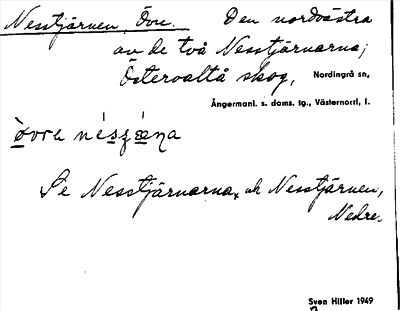 Nesstjärnen, Övre. Den nordvästra
av de två Nesstjärnarna;
Östervaltå skog, Nordingrå sn,
Ångermanl. s. doms. tg., Västernorrl. l.
Se Nesstjärnarna och Nesstjärnen,
Nedre.
Sven Hiller 1949